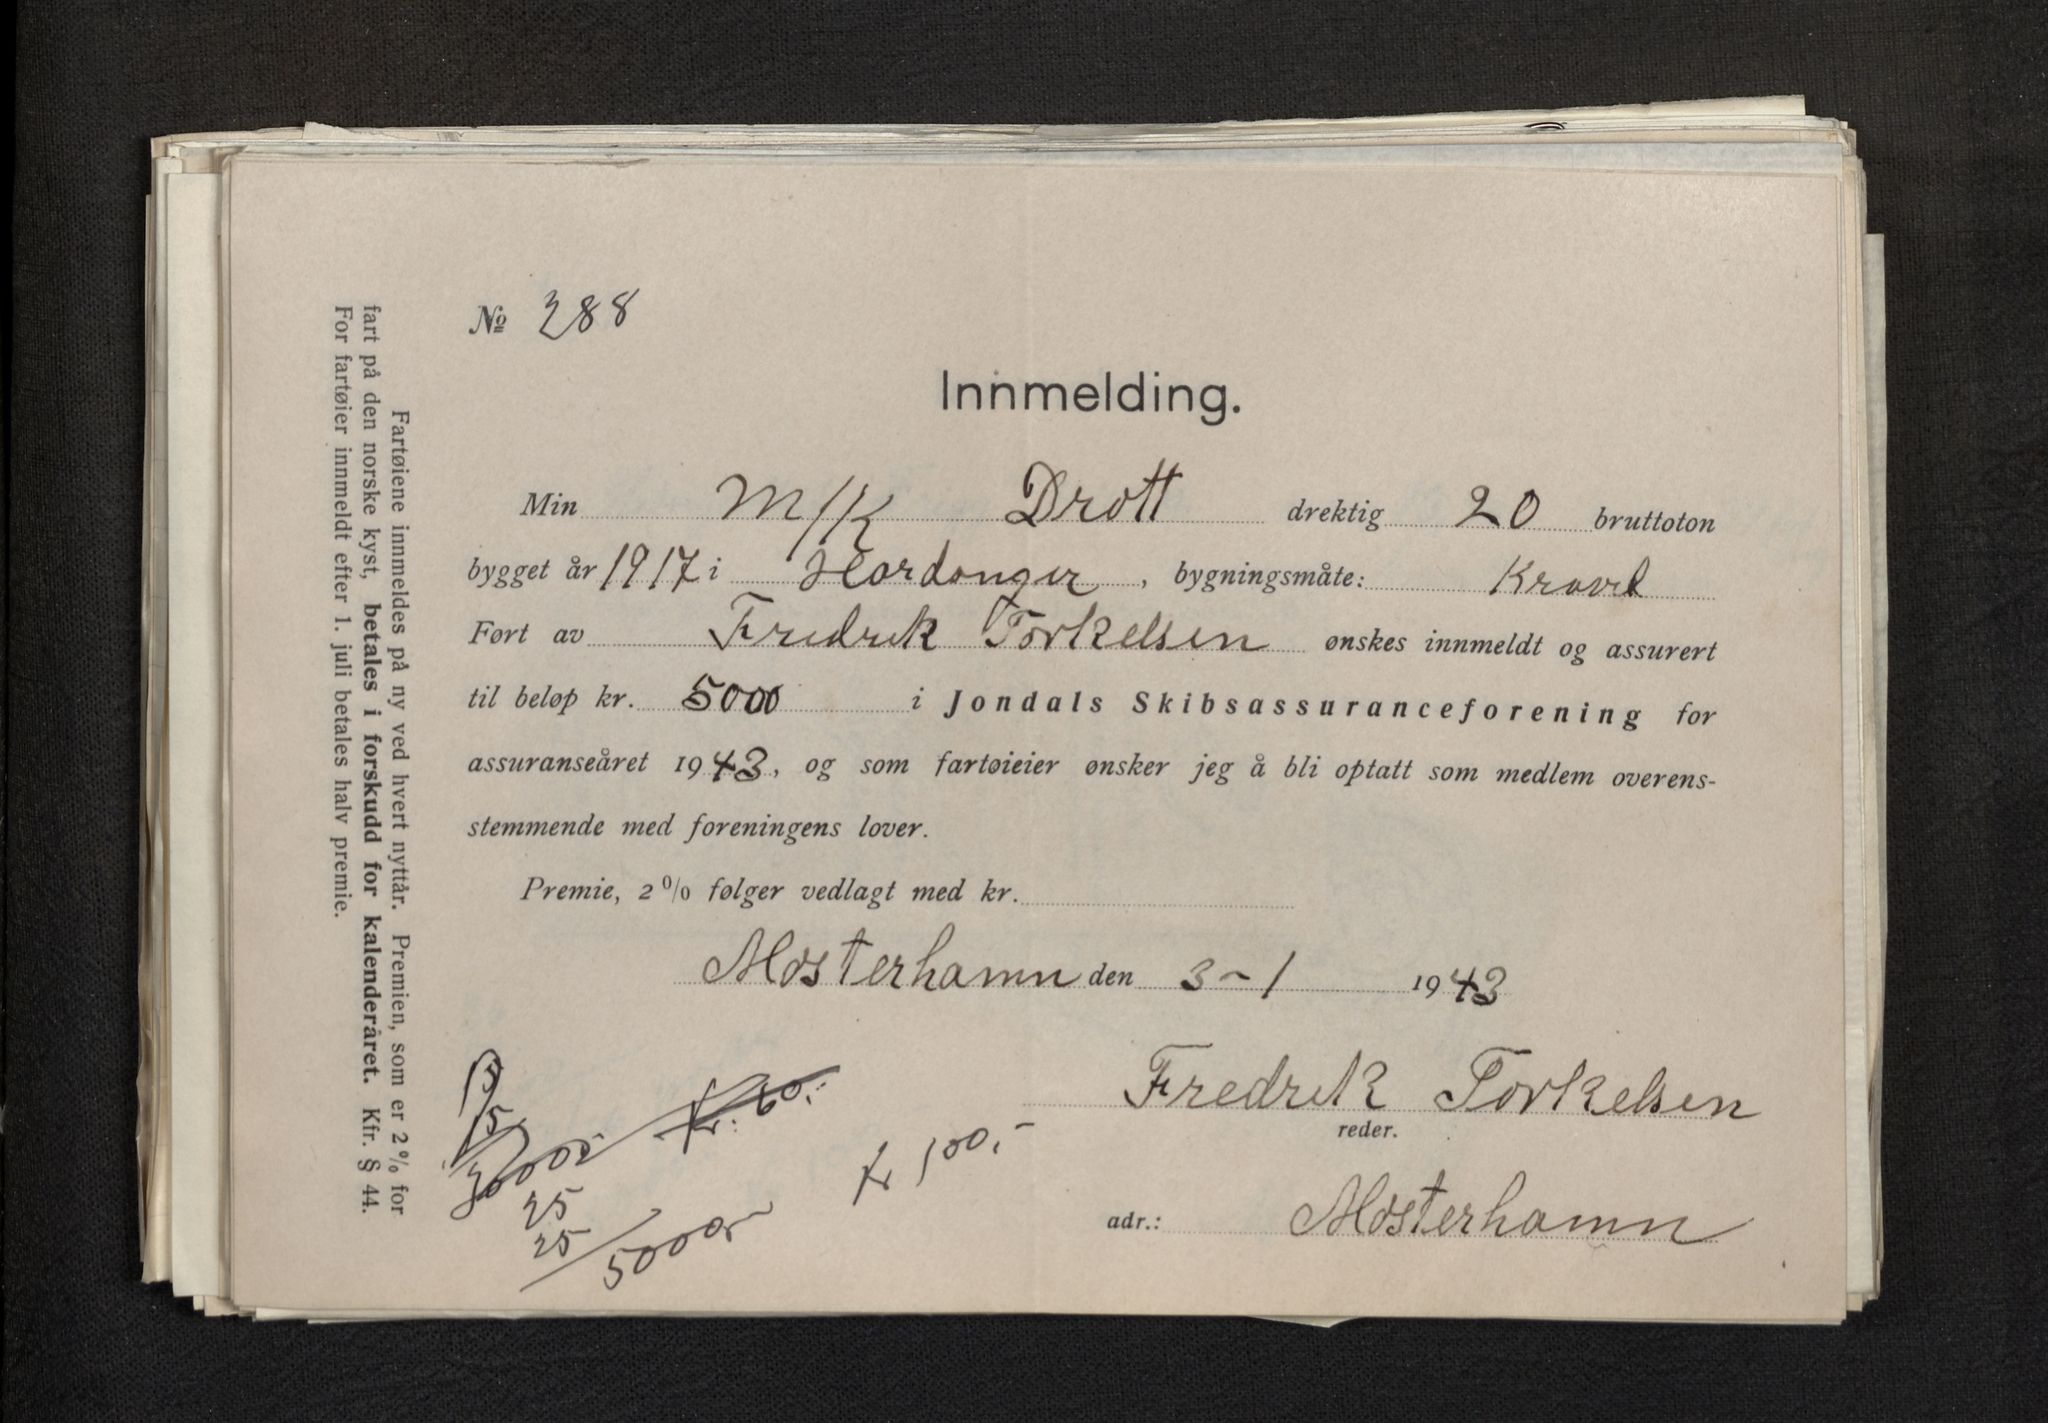 Fartøiene innmeldes på ny ved hvert nyttår. Premien, som er 2 % for
fart på den norske kyst, betales i forskudd for kalenderåret. Kfr. § 44.
For fartøier innmeldt efter 1. juli betales halv premie.
№ 288
Innmelding.
Min M/K Drott drektig 20 bruttoton
bygget år 1917 i Hardanger, bygningsmåte: Kravel
Ført av Fredrik Torkelsen ønskes innmeldt og assurert
til beløp kr. 5000 i Jondals Skibsassuranceforening for
assuranseåret 1943, og som fartøieier ønsker jeg å bli optatt som medlem overens-
stemmende med foreningens lover.
Premie, 2 % følger vedlagt med kr.
Mosterhamn den 3-1 1943
Fredrik Torkelsen
reder.
adr.: Mosterhamn
15
15/3000.-
kr. 60.-
25
25/5000.-
kr 100.-